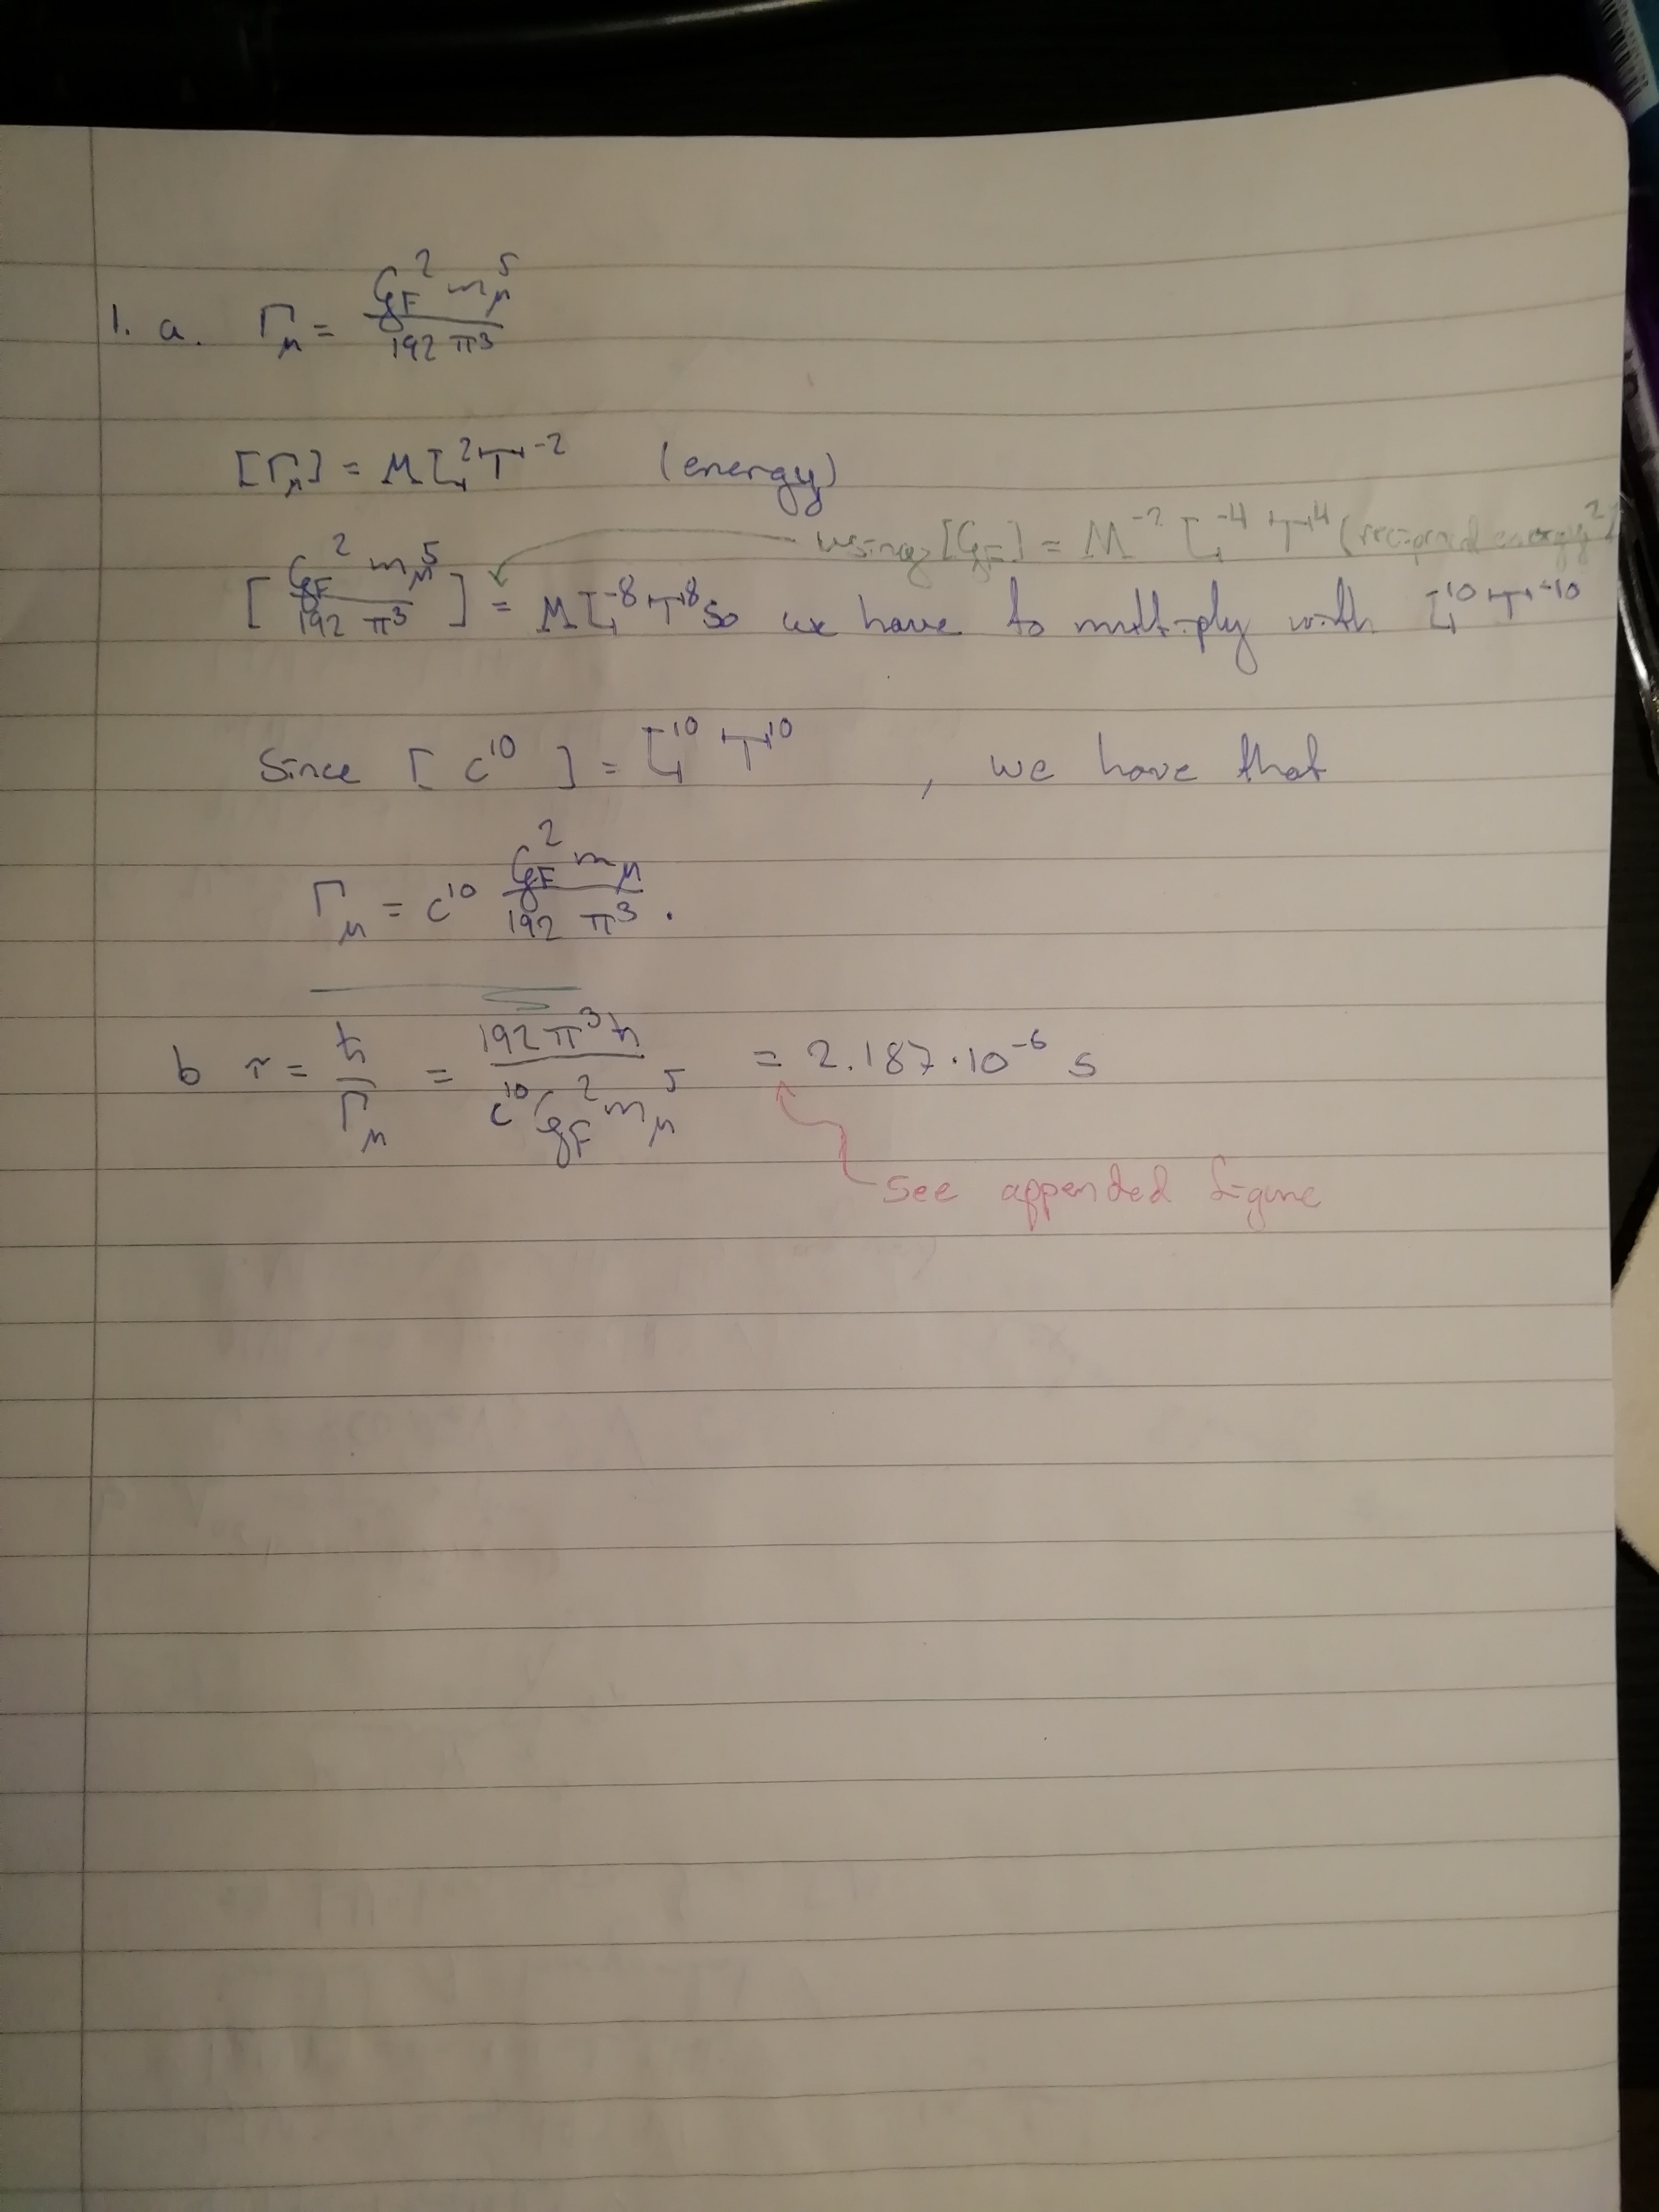 1. a. Γ_μ = G_F^2 m_μ^5 / 192 π^3
[Γ_μ] = M L^2 T^-2 (energy)
using [G_F] = M^-2 L^-4 T^4 (reciprocal energy^2)
[G_F^2 m_μ^5 / 192 π^3] = M L^-8 T^8 so we have to multiply with L^10 T^-10
Since [c^10] = L^10 T^10, we have that
Γ_μ = c^10 G_F^2 m_μ / 192 π^3.
b τ = ħ / Γ_μ = 192 π^3 ħ / c^10 G_F^2 m_μ^5 = 2.187·10^-6 s
See appended figure